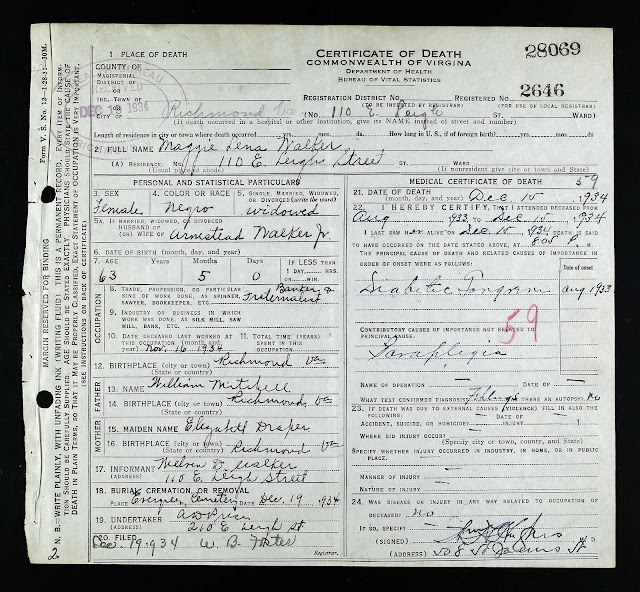 Form V. S. No. 12—1-28-31—30M.
MARGIN RESERVED FOR BINDING
N. B.—WRITE PLAINLY, WITH UNFADING INK (WRITING FLUID) THIS IS A PERMANENT RECORD. EVERY ITEM OF INFORMATION SHOULD BE CAREFULLY SUPPLIED. AGE SHOULD BE STATED EXACTLY. PHYSICIANS SHOULD STATE THE CAUSE OF DEATH IN PLAIN TERMS, SO THAT IT MAY BE PROPERLY CLASSIFIED. EXACT STATEMENT OF OCCUPATION IS VERY IMPORTANT.
(SEE INSTRUCTIONS ON BACK OF CERTIFICATE.)
2
1 PLACE OF DEATH
CERTIFICATE OF DEATH
COMMONWEALTH OF VIRGINIA
DEPARTMENT OF HEALTH
BUREAU OF VITAL STATISTICS
28069
COUNTY OF
MAGISTERIAL
DISTRICT OF
OR
INC. TOWN OF
OR
CITY OF Richmond Va
BUREAU
RECEIVED
DEC 19 1934
REGISTRATION DISTRICT NO.
(TO BE INSERTED BY REGISTRAR)
REGISTERED NO. 2646
(FOR USE OF LOCAL REGISTRAR)
No. 110 E. Leigh ST. WARD)
(If death occurred in a hospital or other institution, give its NAME instead of street and number)
Length of residence in city or town where death occurred yrs. mos. How long in U. S., if of foreign birth? yrs. mos.
2 FULL NAME Maggie Lena Walker
(A) RESIDENCE. No. 110 E. Leigh Street ST. WARD
(Usual place of abode) (If nonresident give city or town and State)
PERSONAL AND STATISTICAL PARTICULARS
3. SEX Female
4. COLOR OR RACE Negro
5. SINGLE, MARRIED, WIDOWED, OR DIVORCED (write the word) widowed
5A. IF MARRIED, WIDOWED, OR DIVORCED
HUSBAND OF
(OR) WIFE OF Armstead Walker Jr.
6. DATE OF BIRTH (month, day, and year)
7. AGE Years 63 Months 5 Days 0
IF LESS THAN 1 DAY, HRS.
OR MIN.
OCCUPATION
8. TRADE, PROFESSION, OR PARTICULAR KIND OF WORK DONE, AS SPINNER, SAWYER, BOOKKEEPER, ETC. Banker & Fraternalist
9. INDUSTRY OR BUSINESS IN WHICH WORK WAS DONE, AS SILK MILL, SAW MILL, BANK, ETC.
10. DATE DECEASED LAST WORKED AT THIS OCCUPATION (month and year) Nov. 16 1934
11. TOTAL TIME (YEARS) SPENT IN THIS OCCUPATION
12. BIRTHPLACE (city or town) Richmond Va
(State or country)
FATHER
13. NAME William Mitchell
14. BIRTHPLACE (city or town) Richmond Va
(State or country)
MOTHER
15. MAIDEN NAME Elizabeth Draper
16. BIRTHPLACE (city or town) Richmond Va
(State or country)
17. INFORMANT Melvin D. Walker
(ADDRESS) 110 E. Leigh Street
18. BURIAL, CREMATION, OR REMOVAL
PLACE Evergreen Cemetery DATE Dec. 19 1934
19. UNDERTAKER A D Price
(ADDRESS) 210 E Leigh St
20. FILED Dec. 19 1934 W. B. Foster
Registrar.
MEDICAL CERTIFICATE OF DEATH 59
21. DATE OF DEATH (month, day, and year) Dec 15 1934
22. I HEREBY CERTIFY, THAT I ATTENDED DECEASED FROM
Aug 1933 TO Dec 15 1934
I LAST SAW HER ALIVE ON Dec 15 1934 DEATH IS SAID
TO HAVE OCCURRED ON THE DATE STATED ABOVE, AT 8:05 P. M.
THE PRINCIPAL CAUSE OF DEATH AND RELATED CAUSES OF IMPORTANCE IN ORDER OF ONSET WERE AS FOLLOWS:
Date of onset
Diabetic Gangrene Aug 1933
59
CONTRIBUTORY CAUSES OF IMPORTANCE NOT RELATED TO PRINCIPAL CAUSE:
Paraplegia
NAME OF OPERATION DATE OF
WHAT TEST CONFIRMED DIAGNOSIS? WAS THERE AN AUTOPSY? No
23. IF DEATH WAS DUE TO EXTERNAL CAUSES (VIOLENCE) FILL IN ALSO THE FOLLOWING:
ACCIDENT, SUICIDE, OR HOMICIDE? DATE OF INJURY 1
WHERE DID INJURY OCCUR?
(Specify city or town, county, and State)
SPECIFY WHETHER INJURY OCCURRED IN INDUSTRY, IN HOME, OR IN PUBLIC PLACE.
MANNER OF INJURY
NATURE OF INJURY
24. WAS DISEASE OR INJURY IN ANY WAY RELATED TO OCCUPATION OF DECEASED? no
IF SO, SPECIFY
(SIGNED) M. D.
(ADDRESS) 508 St James St